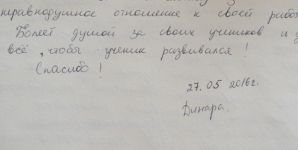 неравнодушное отношение к своей работе
Болеет душой за своих учеников и
всё, чтобы ученик развивался!
Спасибо!
27.05 2016г.
Динара.